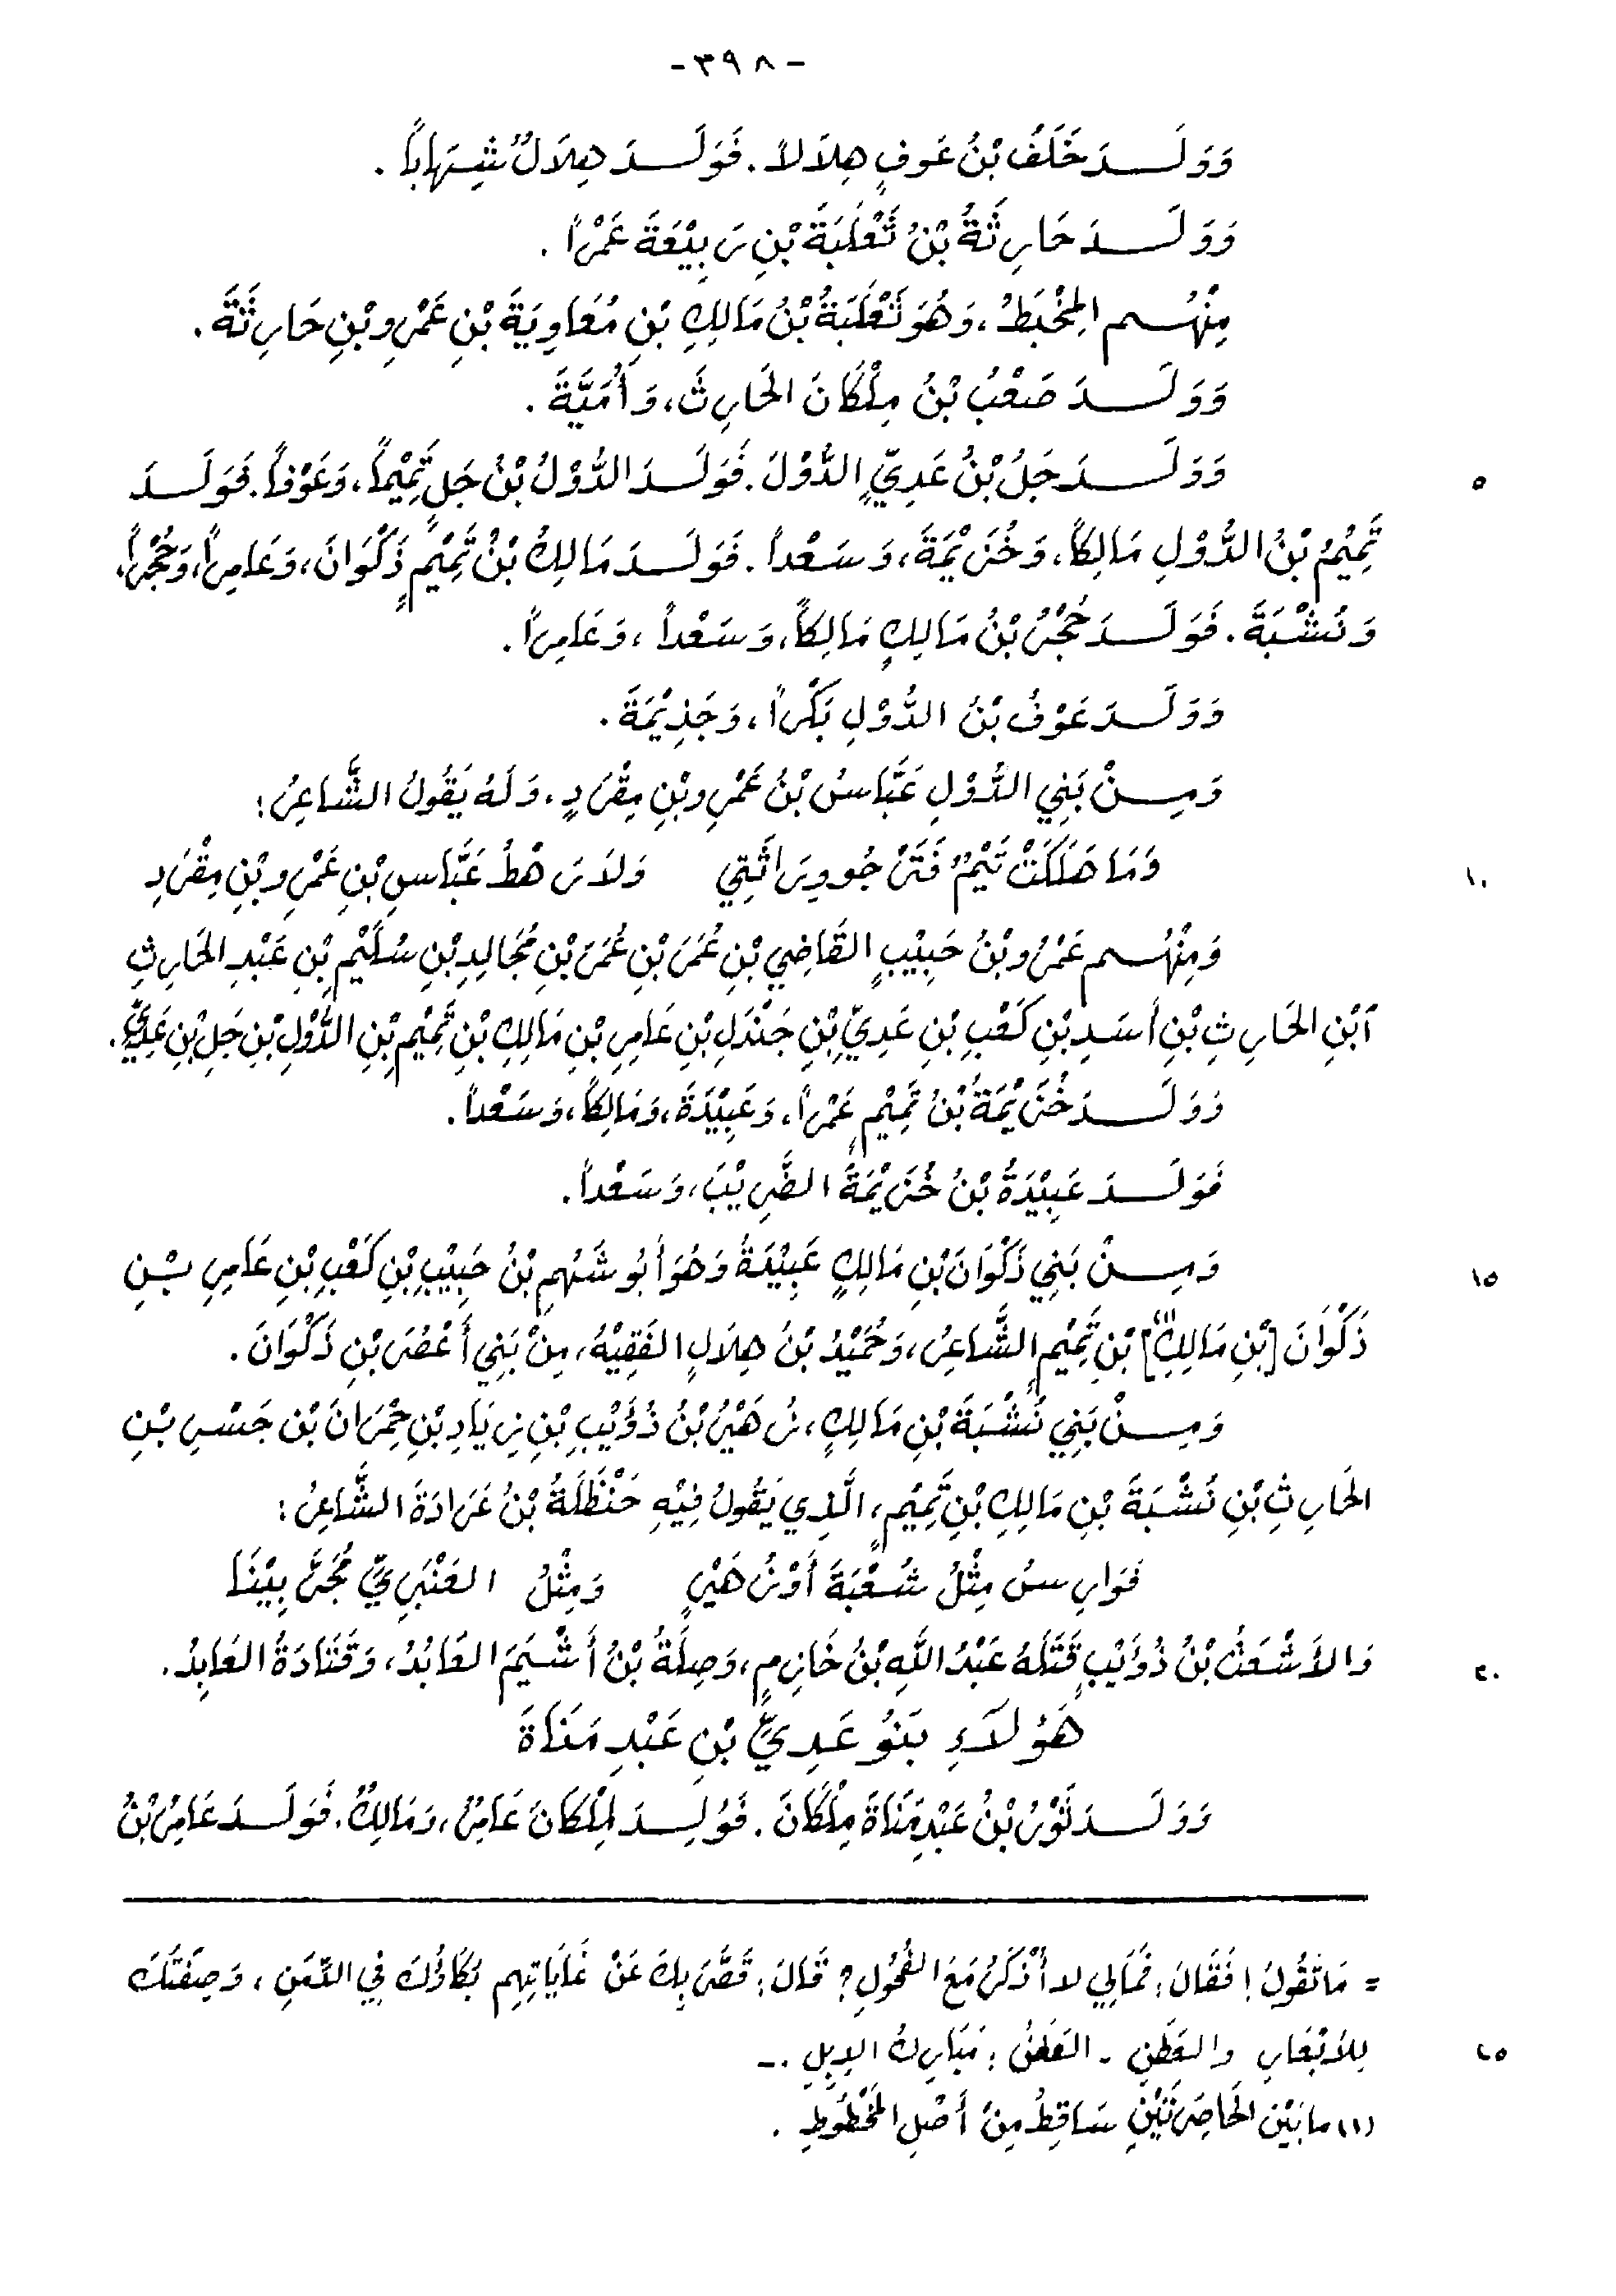 -٣٩٨-
وَوَلَـدَ خَلَفُ بْنُ عَوفٍ هِلاَلاً. فَوَلَـدَ هِلاَلٌ شِهَاباً.
وَوَلَـدَ حَارِثَةُ بْنُ ثَعْلَبَةَ بْنِ رَبِيْعَةَ عَمْراً.
مِنْهُـم المِخْبَطُ، وَهُوَ ثَعْلَبَةُ بْنُ مَالِكِ بْنِ مُعَاوِيَةَ بْنِ عَمْرِو بْنِ حَارِثَةَ.
وَوَلَـدَ صَعْبُ بْنُ مِلْكَانَ الحَارِثَ، وَأُمَيَّةَ.
٥ وَوَلَـدَ جَلُّ بْنُ عَدِيٍّ الدُّوْلَ. فَوَلَـدَ الدُّوْلُ بْنُ جَلٍ تَمِيْماً، وَعَوْفاً. فَوَلَـدَ
تَمِيْمُ بْنُ الدُّوْلِ مَالِكاً، وَخُزَيْمَةَ، وَسَعْداً. فَوَلَـدَ مَالِكُ بْنُ تَمِيْمٍ ذَكْوَانَ، وَعَامِراً، وَحُجْراً،
وَنُشْبَةَ. فَوَلَـدَ حُجْرُ بْنُ مَالِكٍ مَالِكاً، وَسَعْداً، وَعَامِراً.
وَوَلَـدَ عَوْفُ بْنُ الدُّوْلِ بَكْراً، وَجَذِيْمَةَ.
وَمِـنْ بَنِي الدُّوْلِ عَبَّاسُ بْنُ عَمْرِو بْنِ مِقْرَدٍ، وَلَهُ يَقُولُ الشَّاعِرُ:
١٠ وَمَا هَلَكَتْ تَيْمٌ فَتَرْجُو وِرَاثَتِي وَلاَ رَهْطُ عَبَّاسِ بْنِ عَمْرِو بْنِ مِقْرَدِ
وَمِنْهُـم عَمْرُو بْنُ حَبِيْبٍ القَاضِي بْنِ عُمَرَ بْنِ عُمَرَ بْنِ مُجَالِدِ بْنِ سُلَيْمِ بْنِ عَبْدِ الحَارِثِ
ٱبْنِ الحَارِثِ بْنِ أَسَدِ بْنِ كَعْبِ بْنِ عَدِيِّ بْنِ جَنْدَلِ بْنِ عَامِرِ بْنِ مَالِكِ بْنِ تَمِيْمِ بْنِ الدُّوْلِ بْنِ جَلِ بْنِ عَدِيٍّ.
وَوَلَـدَ خُزَيْمَةُ بْنُ تَمِيْمٍ عَمْراً، وَعَبِيْدَةَ، وَمَالِكاً، وَسَعْداً.
فَوَلَـدَ عَبِيْدَةُ بْنُ خُزَيْمَةَ الضَّرِيْبَ، وَسَعْداً.
١٥ وَمِـنْ بَنِي ذَكْوَانَ بْنِ مَالِكٍ عَبِيْدَةُ وَهُوَ أَبُو شَهْمِ بْنُ حَبِيْبِ بْنِ كَعْبِ بْنِ عَامِرِ بْـنِ
ذَكْوَانَ [بْنِ مَالِكِ]⁽¹⁾ بْنِ تَمِيْمٍ الشَّاعِرُ، وَحُمَيْدُ بْنُ هِلاَلٍ الفَقِيْهُ، مِنْ بَنِي أَعْصُرَ بْنِ ذَكْوَانَ.
وَمِـنْ بَنِي نُشْبَةَ بْنِ مَالِكٍ، زُهَيْرُ بْنُ ذُؤَيْبِ بْنِ زِيَادِ بْنِ حِمْرَانَ بْنِ جَسْرِ بْنِ
الحَارِثِ بْنِ نُشْبَةَ بْنِ مَالِكِ بْنِ تَمِيْمٍ، الَّذِي يَقُولُ فِيْهِ حَنْظَلَةُ بْنُ عَرَادَةَ الشَّاعِرُ:
فَوَارِسُ مِثْلُ شُعْبَةَ أَوْ زُهَيْرٍ وَمِثْلُ العَنْبَرِيِّ مُجَرَّبِيْنَا
٢٠ وَالأَشْعَثُ بْنُ ذُؤَيْبٍ قَتَلَهُ عَبْدُ اللَّهِ بْنُ خَازِمٍ، وَصِلَةُ بْنُ أَشْيَمَ العَابُدُ، وَقَتَادَةُ العَابِدُ.
هَؤُلاَءِ بَنُو عَدِيِّ بْنِ عَبْدِ مَنَاةَ
وَوَلَـدَ ثَوْرُ بْنُ عَبْدِ مَنَاةَ مِلْكَانَ. فَوُلِـدَ لِمْلكَانَ عَامِرٌ، وَمَالِكٌ. فَوَلَـدَ عَامِرُ بْنُ
= مَا تَقُولَ! فَقَالَ: فَمَالِي لا أُذْكَرُ مَعَ الفُحُولِ؟ قَالَ: قَصَّرَ بِكَ عَنْ غَايَاتِهِم بُكَاؤُكَ فِي الدِّمَنِ، وَصِفَتُكَ
٢٥ لِلأَبْعَارِ والعَطَنِ - العَطَنُ: مَبَارِكُ الإِبِلِ.-
(١) ما بَيْنَ الحَاصِرَتَيْنِ سَاقِطُ مِنْ أَصْلِ المَخْطُوطِ.